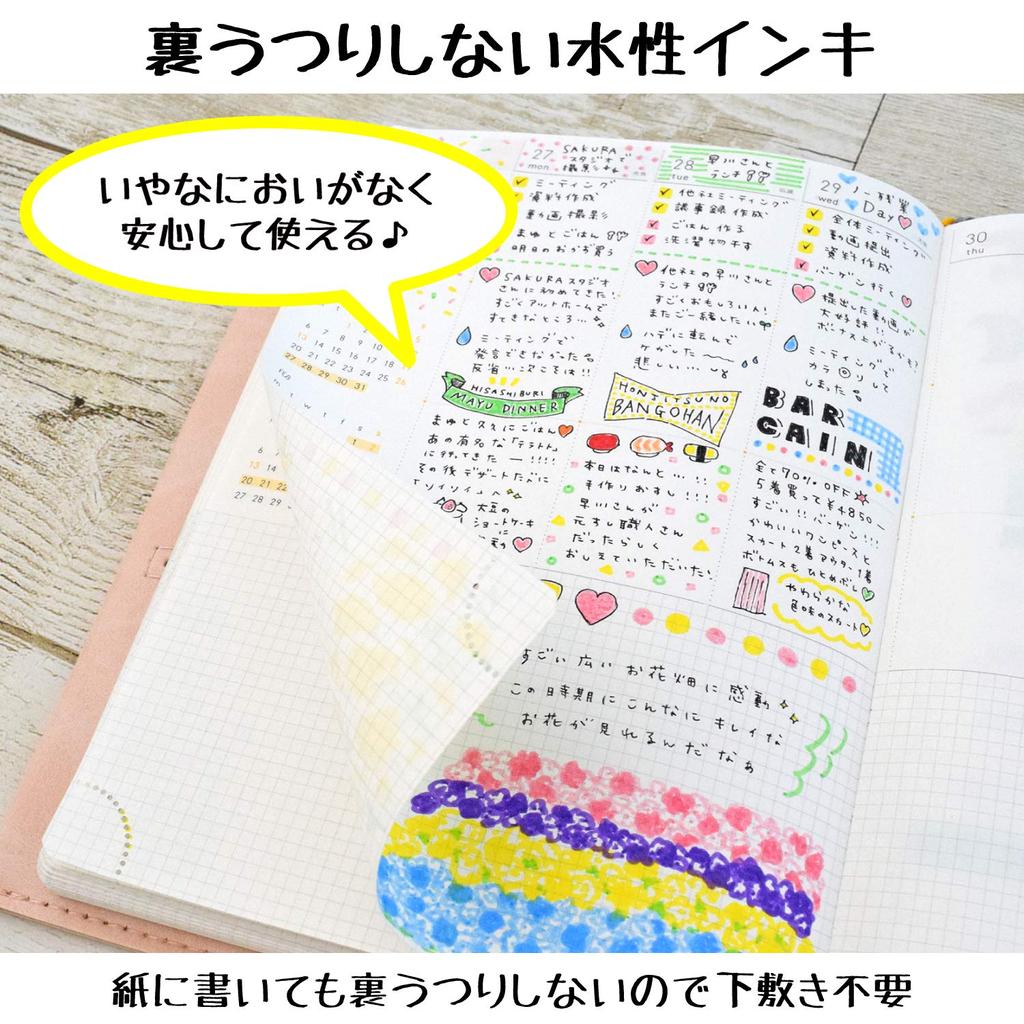 裏うつりしない水性インキ
いやなにおいがなく
安心して使える♪
27
mon
SAKURA
スタジオで
撮影
ミーティング
資料作成
動画撮影
まゆとごはん
明日のおかず買う
SAKURAスタジオ
さんに初めてきた!
すごくアットホームで
すてきなところ…
ミーティングで
発言できなかった
反省…次こそは!!
HISASHIBURI
MAYU DINNER
まゆと久々にごはん
あの有名な「テラトト」
に行ってきたー!!!!
その後デザートたべに
大豆の
ショートケーキ
28
tue
早川さんと
ランチ
他社ミーティング
議事録作成
ごはん作る
洗濯物干す
他社の早川さんと
ランチ
すごくおもしろいい人!
またご一緒したい
ハデに転んで
ケガした
悲しい…
HONJITSUNO
BANGOHAN
本日はなんと…!!
手作りおすし!!!
早川さんが
元すし職人さん
だったらしく
おしえていただいた!
29
wed
ノー残業
Day
全体ミーティング
動画提出
資料作成
バーゲン行く
提出した動画が
大好評!!
ボーナス上がるかも?
ミーティングで
カラ回りして
しまった
BAR
GAIN
全て70% OFF
5着買って¥4850-
すごい!!バーゲン
かわいいワンピースと
スカート2着アウター1着
ボトムスもひとめぼれ
やわらかな
色味のスカート
30
thu
6 7 8 9 10
13 14 15 16 17 18
20 21 22 23 24 25 26
27 28 29 30 31
w t f s s
1 2
6
13 14
20 21 22
27 28 29
すごい広いお花畑に感動
この時期にこんなにキレイな
お花が見れるんだなぁ
紙に書いても裏うつりしないので下敷き不要